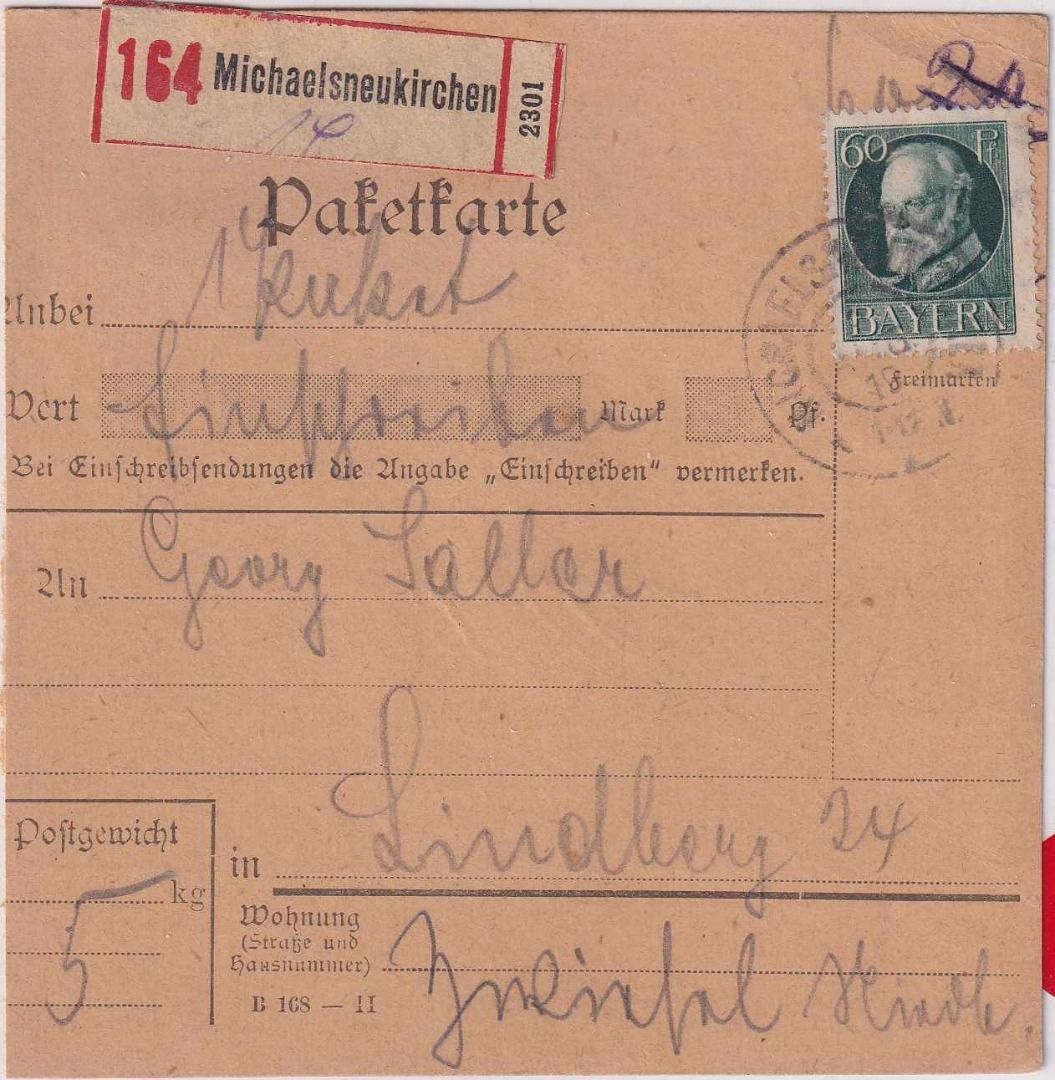 164 Michaelsneukirchen 2301
14
Paketkarte
60 Pf
BAYERN
Unbei 1 Paket
Freimarken
Wert Einschreiben Mark Pf.
Bei Einschreibsendungen die Angabe „Einschreiben“ vermerken.
An Georg Saller
Postgewicht
5 kg
in Lindberg 24
Wohnung
(Straße und
Hausnummer)
Zwiesel
B 168 — II